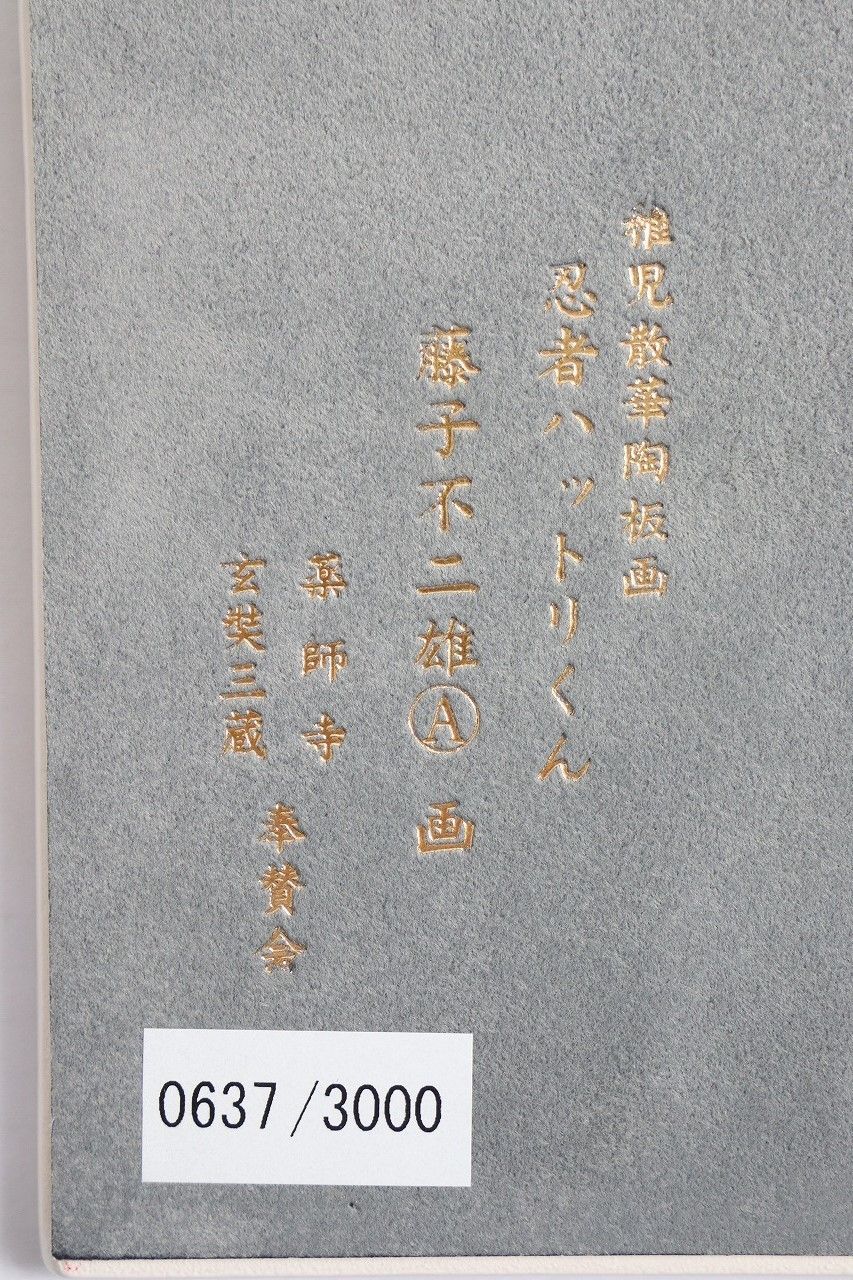 稚児散華陶板画
忍者ハットリくん
藤子不二雄Ⓐ 画
薬師寺
玄奘三蔵
奉賛会
0637/3000